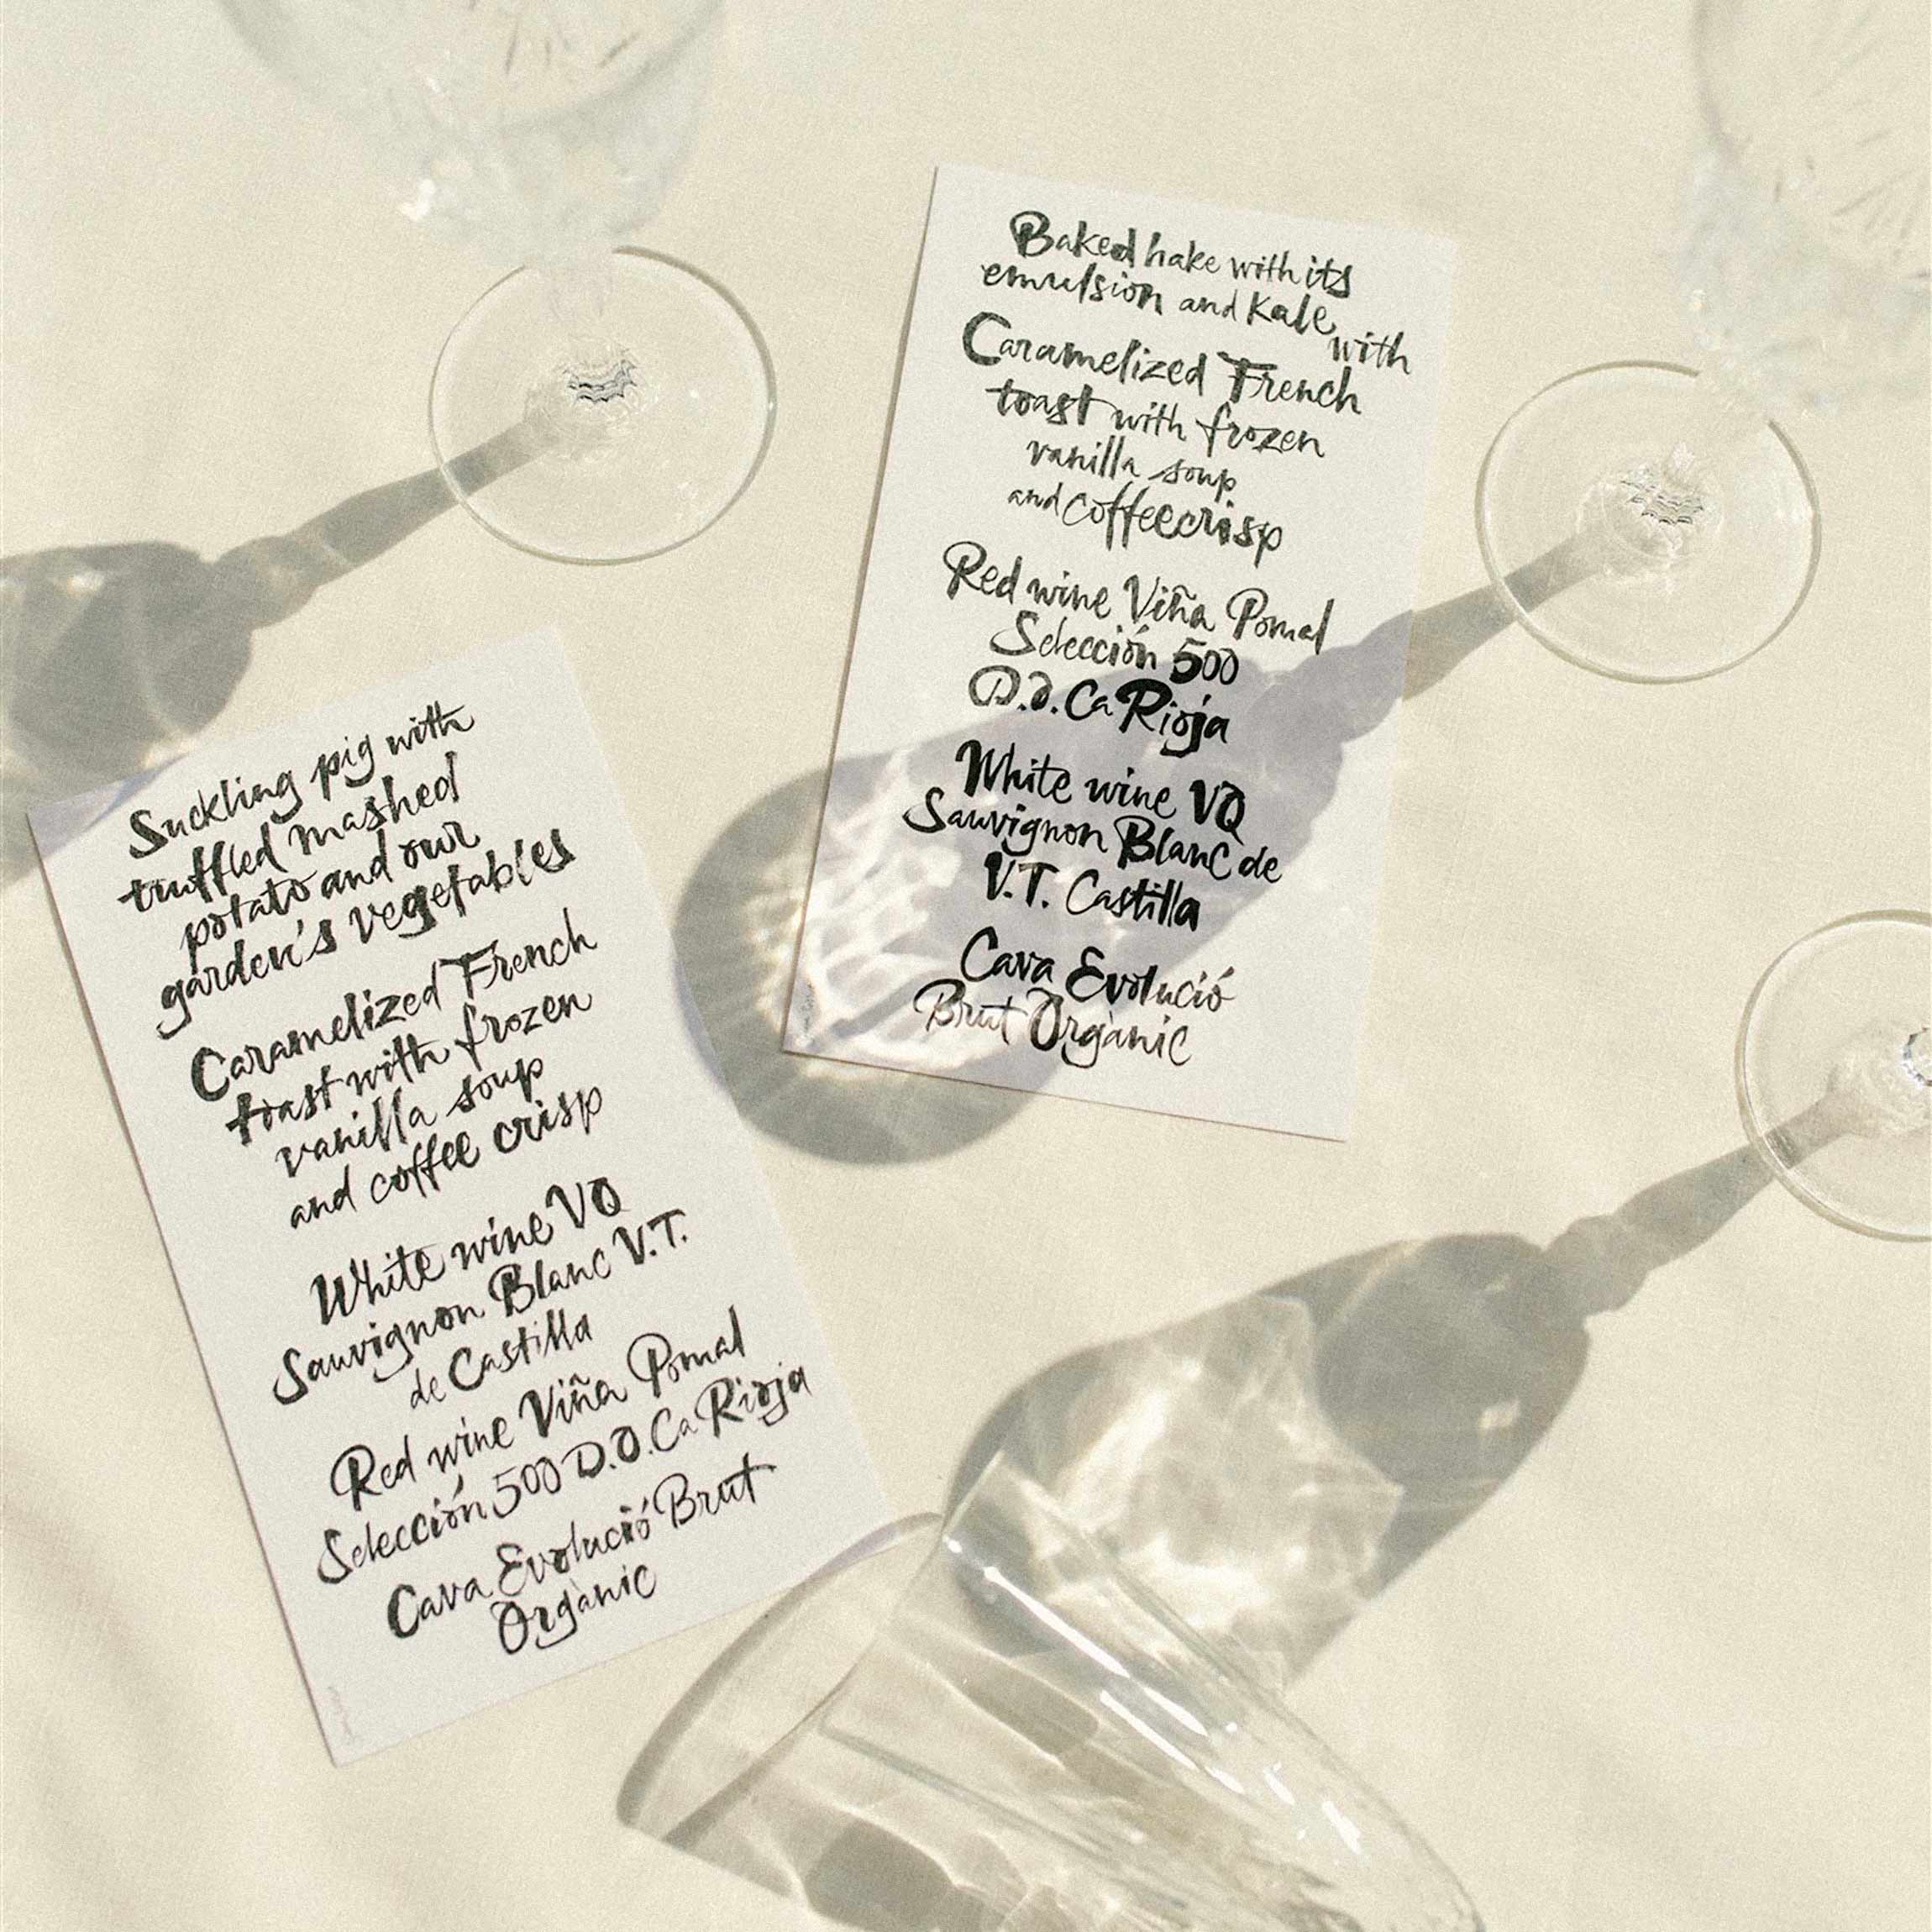 Suckling pig with
truffled mashed
potato and our
garden's vegetables
Caramelized French
toast with frozen
vanilla soup
and coffee crisp
White wine VQ
Sauvignon Blanc V.T.
de Castilla
Red wine Viña Pomal
Selección 500 D.O.Ca Rioja
Cava Evolució Brut
Orgànic
Baked hake with its
emulsion and Kale, with
Caramelized French
toast with frozen
vanilla soup
and coffee crisp
Red wine Viña Pomal
Selección 500
D.O.Ca Rioja
White wine VQ
Sauvignon Blanc de
V.T. Castilla
Cava Evolució
Brut Orgànic